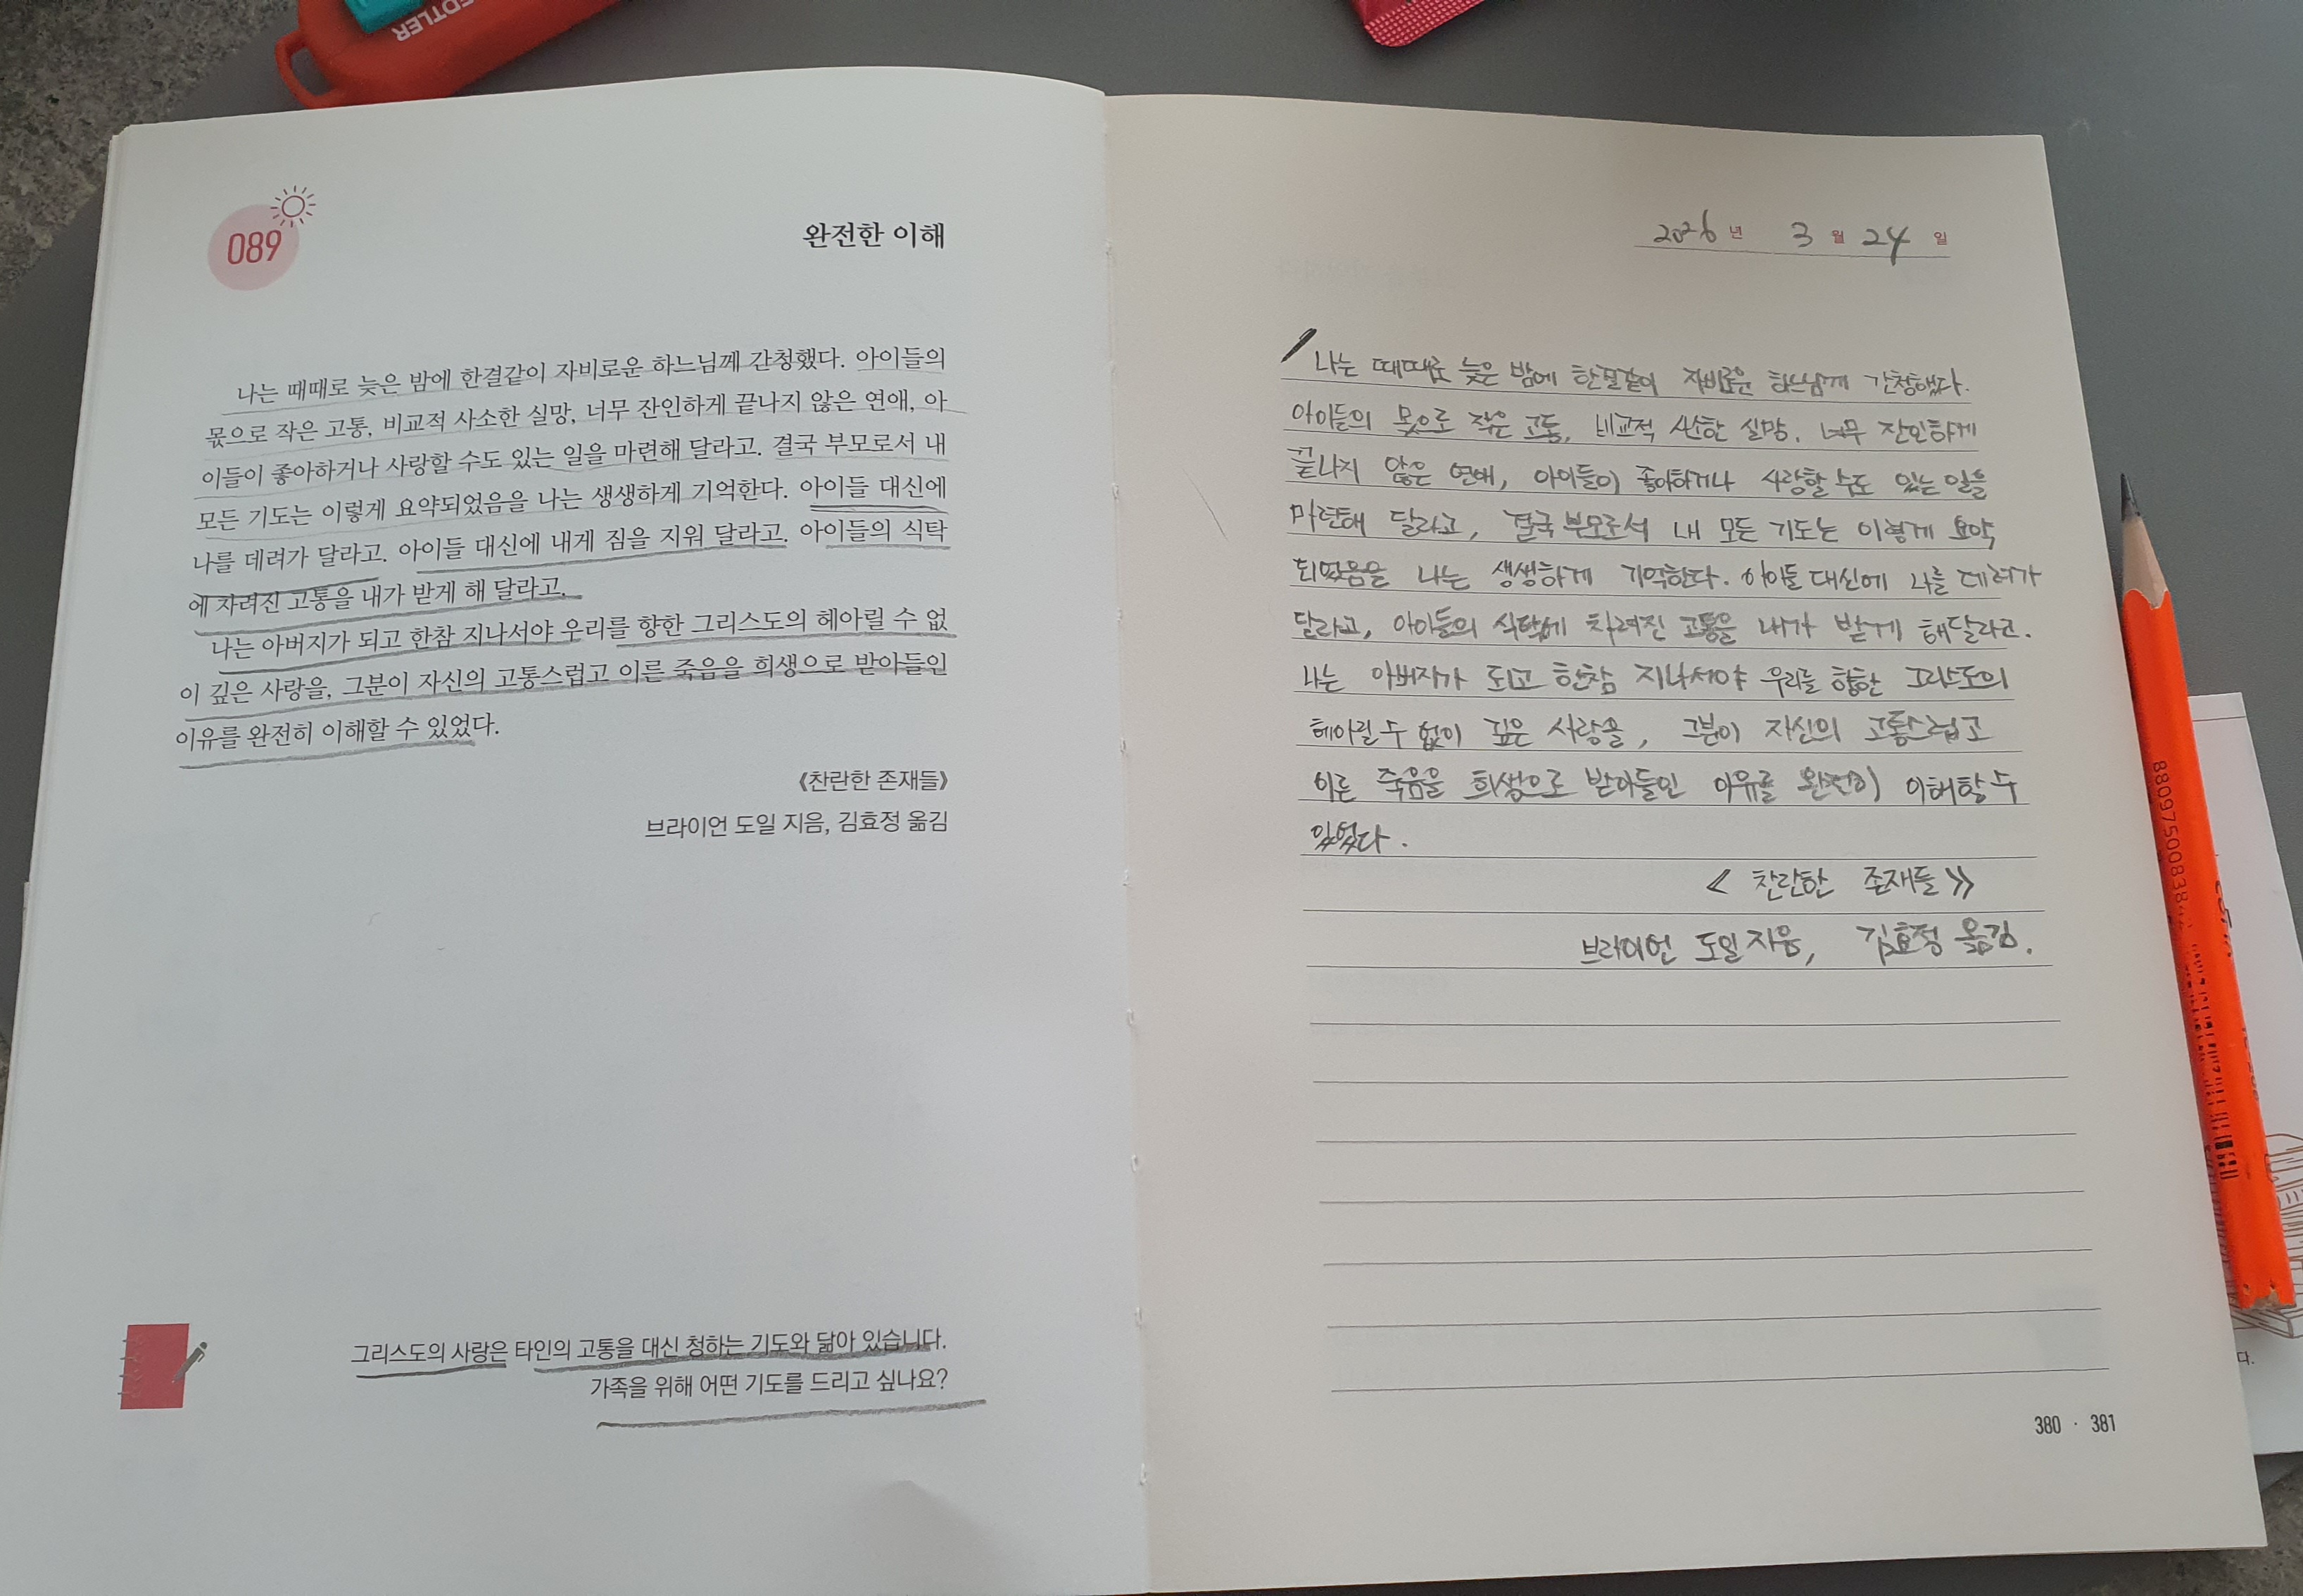 STAEDTLER
089
완전한 이해
나는 때때로 늦은 밤에 한결같이 자비로운 하느님께 간청했다. 아이들의
몫으로 작은 고통, 비교적 사소한 실망, 너무 잔인하게 끝나지 않은 연애, 아
이들이 좋아하거나 사랑할 수도 있는 일을 마련해 달라고. 결국 부모로서 내
모든 기도는 이렇게 요약되었음을 나는 생생하게 기억한다. 아이들 대신에
나를 데려가 달라고. 아이들 대신에 내게 짐을 지워 달라고. 아이들의 식탁
에 차려진 고통을 내가 받게 해 달라고.
나는 아버지가 되고 한참 지나서야 우리를 향한 그리스도의 헤아릴 수 없
이 깊은 사랑을, 그분이 자신의 고통스럽고 이른 죽음을 희생으로 받아들인
이유를 완전히 이해할 수 있었다.
《찬란한 존재들》
브라이언 도일 지음, 김효정 옮김
그리스도의 사랑은 타인의 고통을 대신 청하는 기도와 닮아 있습니다.
가족을 위해 어떤 기도를 드리고 싶나요?
2026년 3월 24일
나는 때때로 늦은 밤에 한결같이 자비로운 하느님께 간청했다.
아이들의 몫으로 작은 고통, 비교적 사소한 실망, 너무 잔인하게
끝나지 않은 연애, 아이들이 좋아하거나 사랑할 수도 있는 일을
마련해 달라고, 결국 부모로서 내 모든 기도는 이렇게 요약
되었음을 나는 생생하게 기억한다. 아이들 대신에 나를 데려가
달라고, 아이들의 식탁에 차려진 고통을 내가 받게 해달라고.
나는 아버지가 되고 한참 지나서야 우리를 향한 그리스도의
헤아릴 수 없이 깊은 사랑을, 그분이 자신의 고통스럽고
이른 죽음을 희생으로 받아들인 이유를 완전히 이해할 수
있었다.
< 찬란한 존재들》
브라이언 도일 지음, 김효정 옮김.
380 · 381
다.